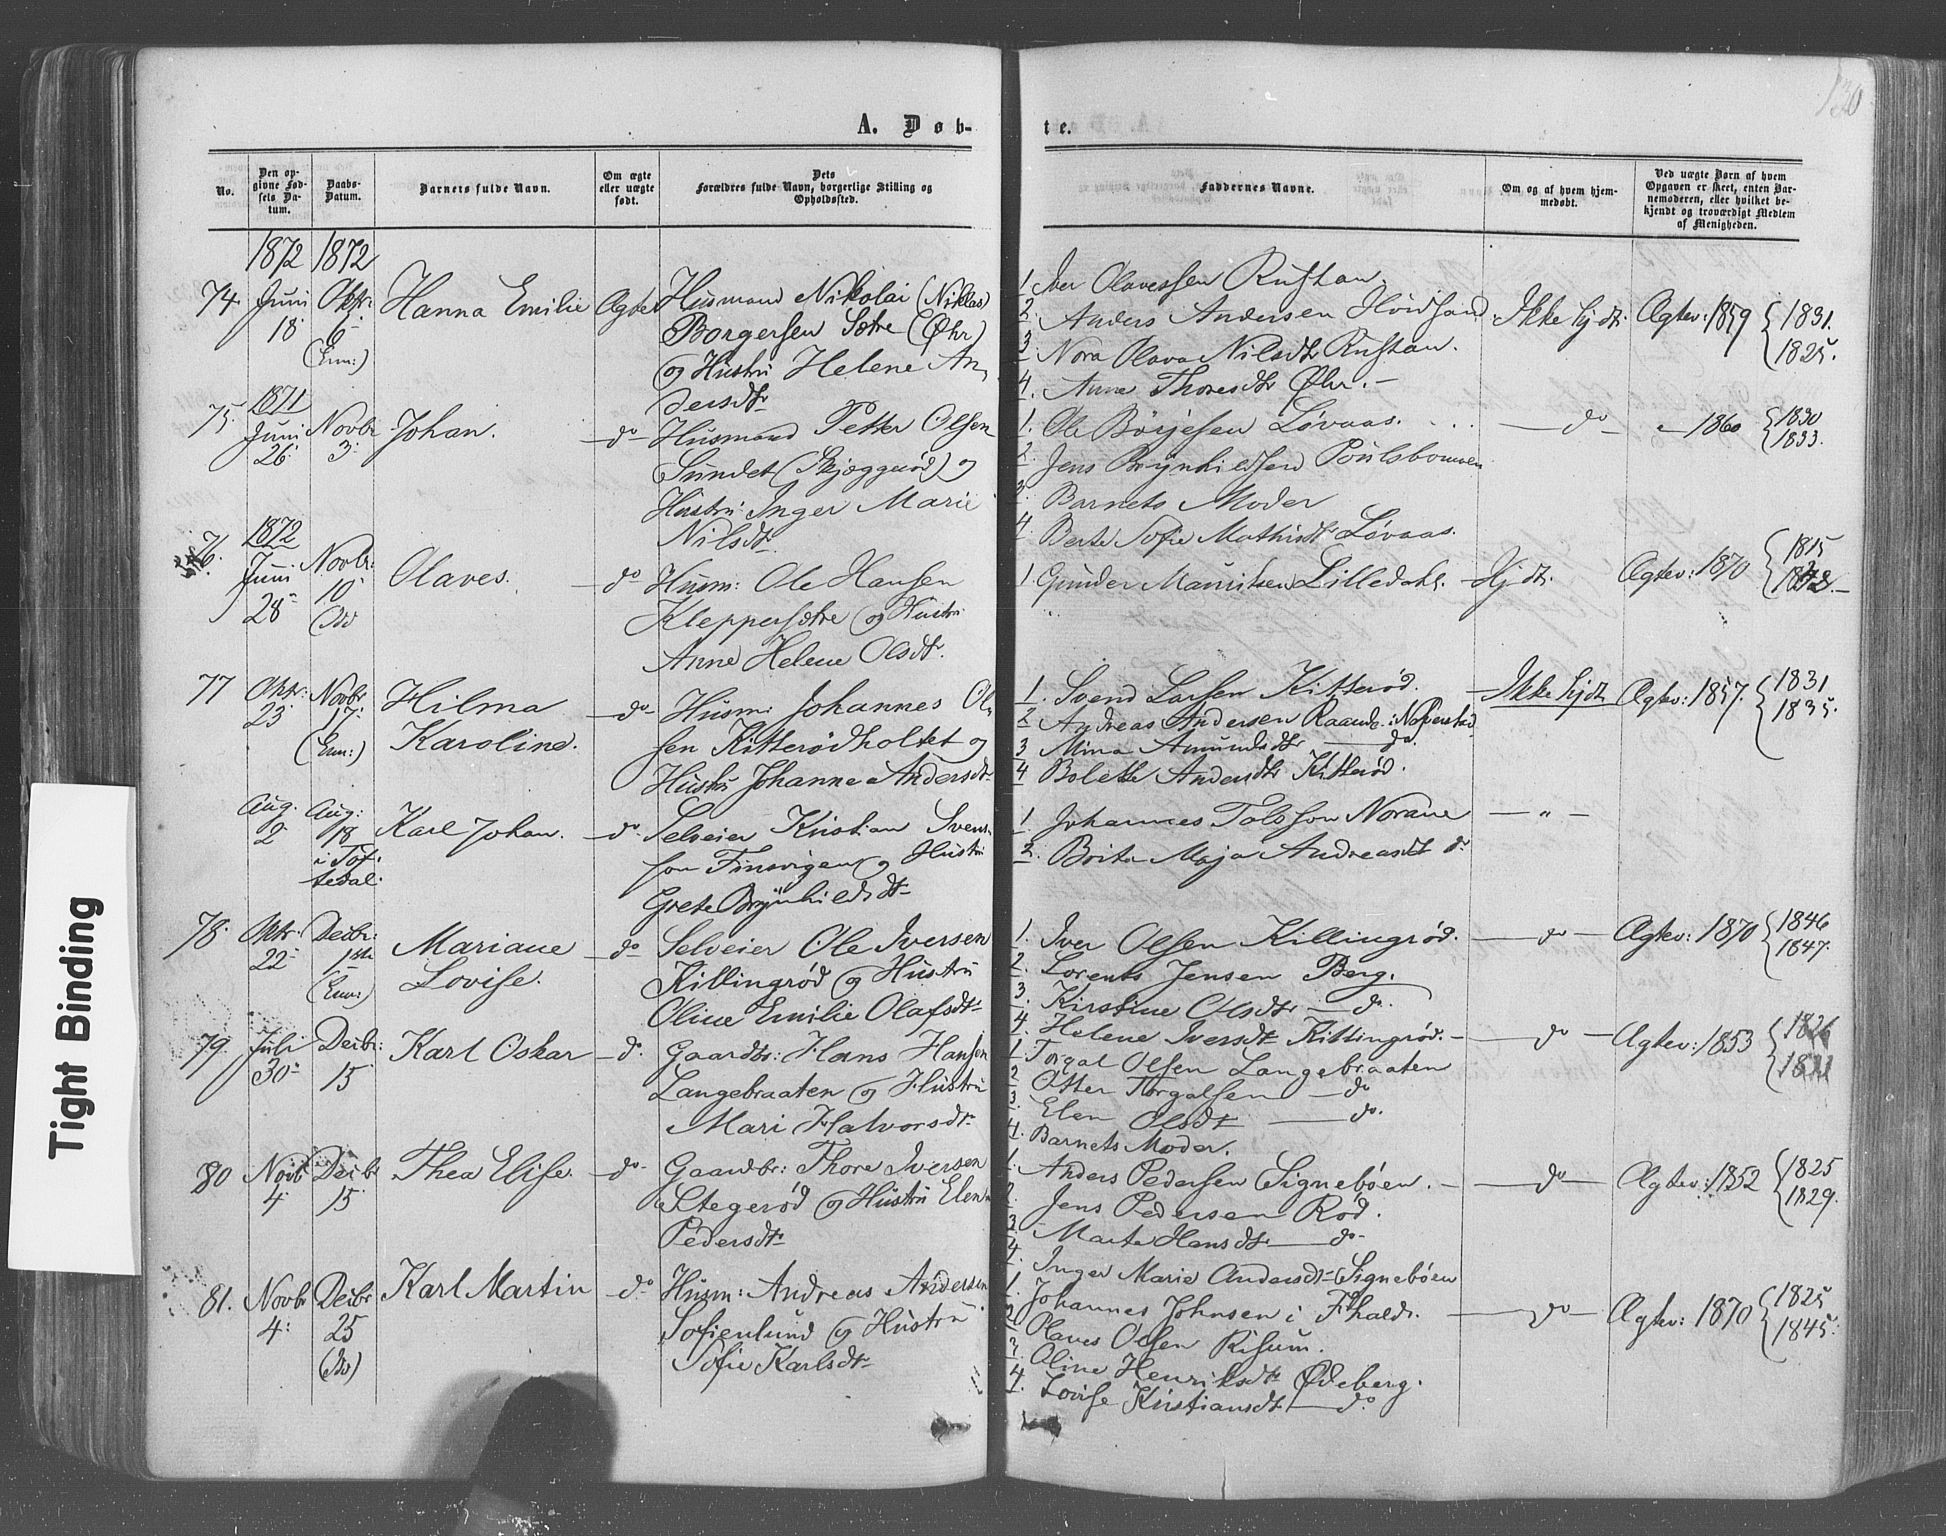 130
A. Døb-
te.
No.
Den op-
givne Fød-
sels Da-
tum.
Daabs-
Datum.
Barnets fulde Navn.
Om ægte
eller uægte
født.
Dets
Forældres fulde Navn, borgerlige Stilling og
Opholdssted.
Faddernes Navne.
Om og af hvem hjem-
medøbt.
Ved uægte Børn af hvem
Opgaven er skeet, enten Bar-
nemoderen, eller hvilket be-
kjendt og troværdigt Medlem
af Menigheden.
1872 1872
74. Juni Oktr: Hanna Emilie Ægte Husmand Nikolai (Niklas)
18 6 Borgersen Sætre (Øhr)
(Enn:) og Hustru Helene An-
dersdtr
1. Iver Olavessen Rustan
2. Anders Andersen
3. Nora Olava Nilsdtr Rustan.
4. Anne Thoresdtr Øhr.
Ikke hjdt. Ægtev: 1859 {1831.
1825.
1871
75. Juni Novbr Johan. do Husmand Petter Olsen
26 3 Sundet (Skjæggerød) og
Hustru: Inger Marie
Nilsdtr
1. Ole Börjesen Løvaas.
2. Jens Brynhildsen
3. Barnets Moder
4. Berte Sofie Mathisdtr Løvaas.
do 1860 {1830
1833.
1872
76. Juni Novbr: Olaves. do Husm: Ole Hansen
28 10 Kleppersætre og Hustru
Anne Helene Olsdtr.
1. Gunder Mauritsen Lilledahl. Hjdt. Ægtev: 1870 {1815
77 Oktr: Novbr Hilma do Husm: Johannes Ol-
23 17 Karoline. sen Kitterødholtet og
(Enn:) Hustru Johanne Andersdtr
1. Svend Larsen Kitterød.
2 Andreas Andersen
3 Mina Amundsdtr do.
4 Bolette Andersdtr Kitterød.
Ikke hjdt. Ægtev: 1857. {1831
1835.
Aug. Aug: Karl Johan. do Selveier Kristian Svens-
2 18 son Finsvigen og Hustru
i Tös- Grete Brynhildsdtr
sedal.
1 Johannes
2. Brita Maja Andreasdtr do
— " —
78. Oktr: Decbr: Mariane do Selveier Ole Iversen
22 1ste Lovise. Killingrød og Hustru
(Enn:) Oline Emilie Olafsdtr
1. Iver Olsen Killingrød.
2. Lorents Jensen Berg.
3. Kirstine Olsdtr do.
4. Helene Iversdtr Killingrød.
do Ægtev: 1870 {1846
1847.
79. Juli Decbr: Karl Oskar do. Gaardbr: Hans Hansen
30 15 Langebraaten og Hustru
Mari Halvorsdtr
1. Torgal Olsen Langebraaten
2 Otter Torgalsen do
3. Elen Olsdtr do.
4. Barnets Moder.
do Ægtev: 1853 {1826
80 Novb Decbr Thea Elise. do Gaardbr: Thore Iversen
4. 15 Stegerød og Hustru Elen
Pedersdtr
1. Anders Pedersen Signebøen.
2. Jens Pedersen Rød.
3. Marte Hansdtr do
4. Inger Marie Andersdtr Signebøen
do Ægtev: 1852 {1825
1829.
81. Novbr Decbr Karl Martin do Husm: Andreas Andersen
4. 25 Sofienlund og Hustru
Sofie Karlsdtr
1. Johannes Johnsen i Fhald.
2 Olaves Olsen Risum.
3. Oline Henriksdtr Ødeberg.
4. Lovise Kristiansdtr do
do Ægtev: 1870 {1825
1845.
Tight Binding